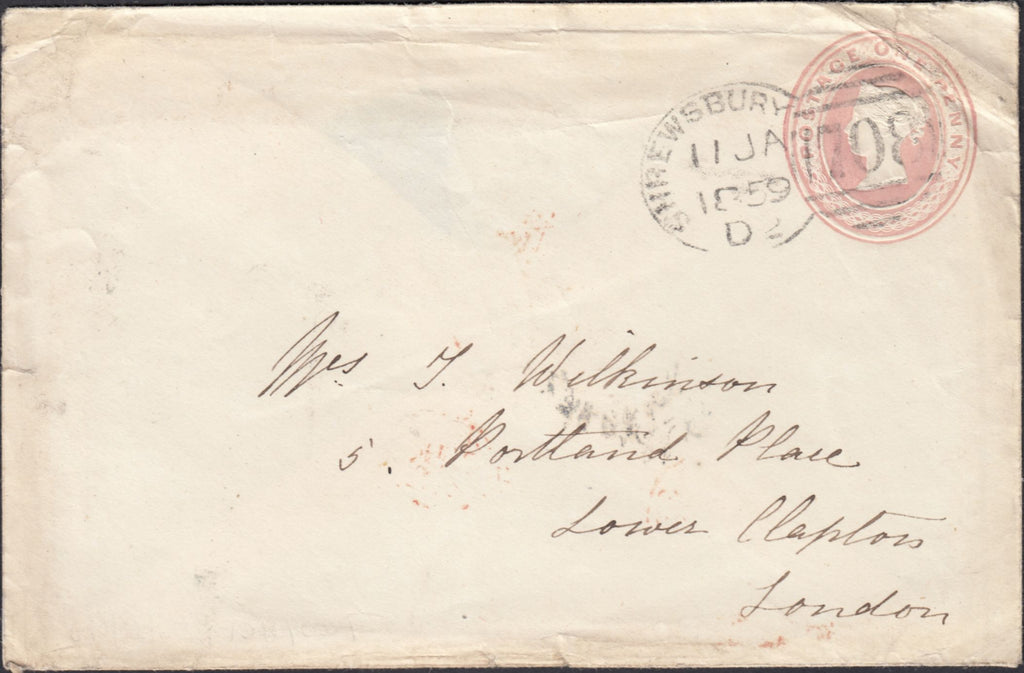 POSTAGE ONE PENNY
SHREWSBURY
11 JA
1859
D2
708
Mrs J. Wilkinson
5. Portland Place
Lower Clapton
London